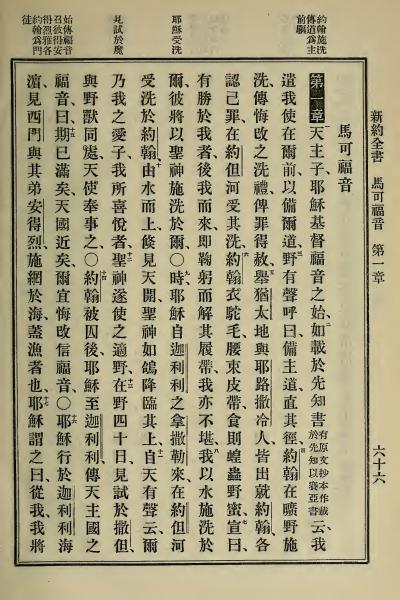 新約全書　馬可福音　第一章　六十六
約翰施洗
傳道爲主
前驅
耶穌受洗
見試於魔
始傳福音
召彼得安
得烈雅各
約翰爲門
徒
馬可福音
第一章　天主子、耶穌基督福音之始、二如載於先知書有原文抄本作載於先知以賽亞書云、我
遣我使在爾前、以備爾道、三野有聲呼曰、備主道、直其徑、四約翰在曠野施
洗、傳悔改之洗禮、俾罪得赦、五舉猶太地與耶路撒冷人、皆出就約翰、各
認己罪、在約但河受其洗、六約翰衣駝毛、腰束皮帶、食則蝗蟲野蜜、七宣曰、
有勝於我者、後我而來、即鞠躬而解其履帶、我亦不堪、八我以水施洗於
爾、彼將以聖神施洗於爾、○九時、耶穌自迦利利之拿撒勒來、在約但河
受洗於約翰、十由水而上、倏見天開、聖神如鴿降臨其上、十一自天有聲云、爾
乃我之愛子、我所喜悅者、十二聖神遂使之適野、十三在野四十日、見試於撒但、
與野獸同處、天使奉事之、○十四約翰被囚後、耶穌至迦利利、傳天主國之
福音、十五曰、期已滿矣、天國近矣、爾宜悔改信福音、○十六耶穌行於迦利利海
濱、見西門與其弟安得烈、施網於海、蓋漁者也、十七耶穌謂之曰、從我、我將